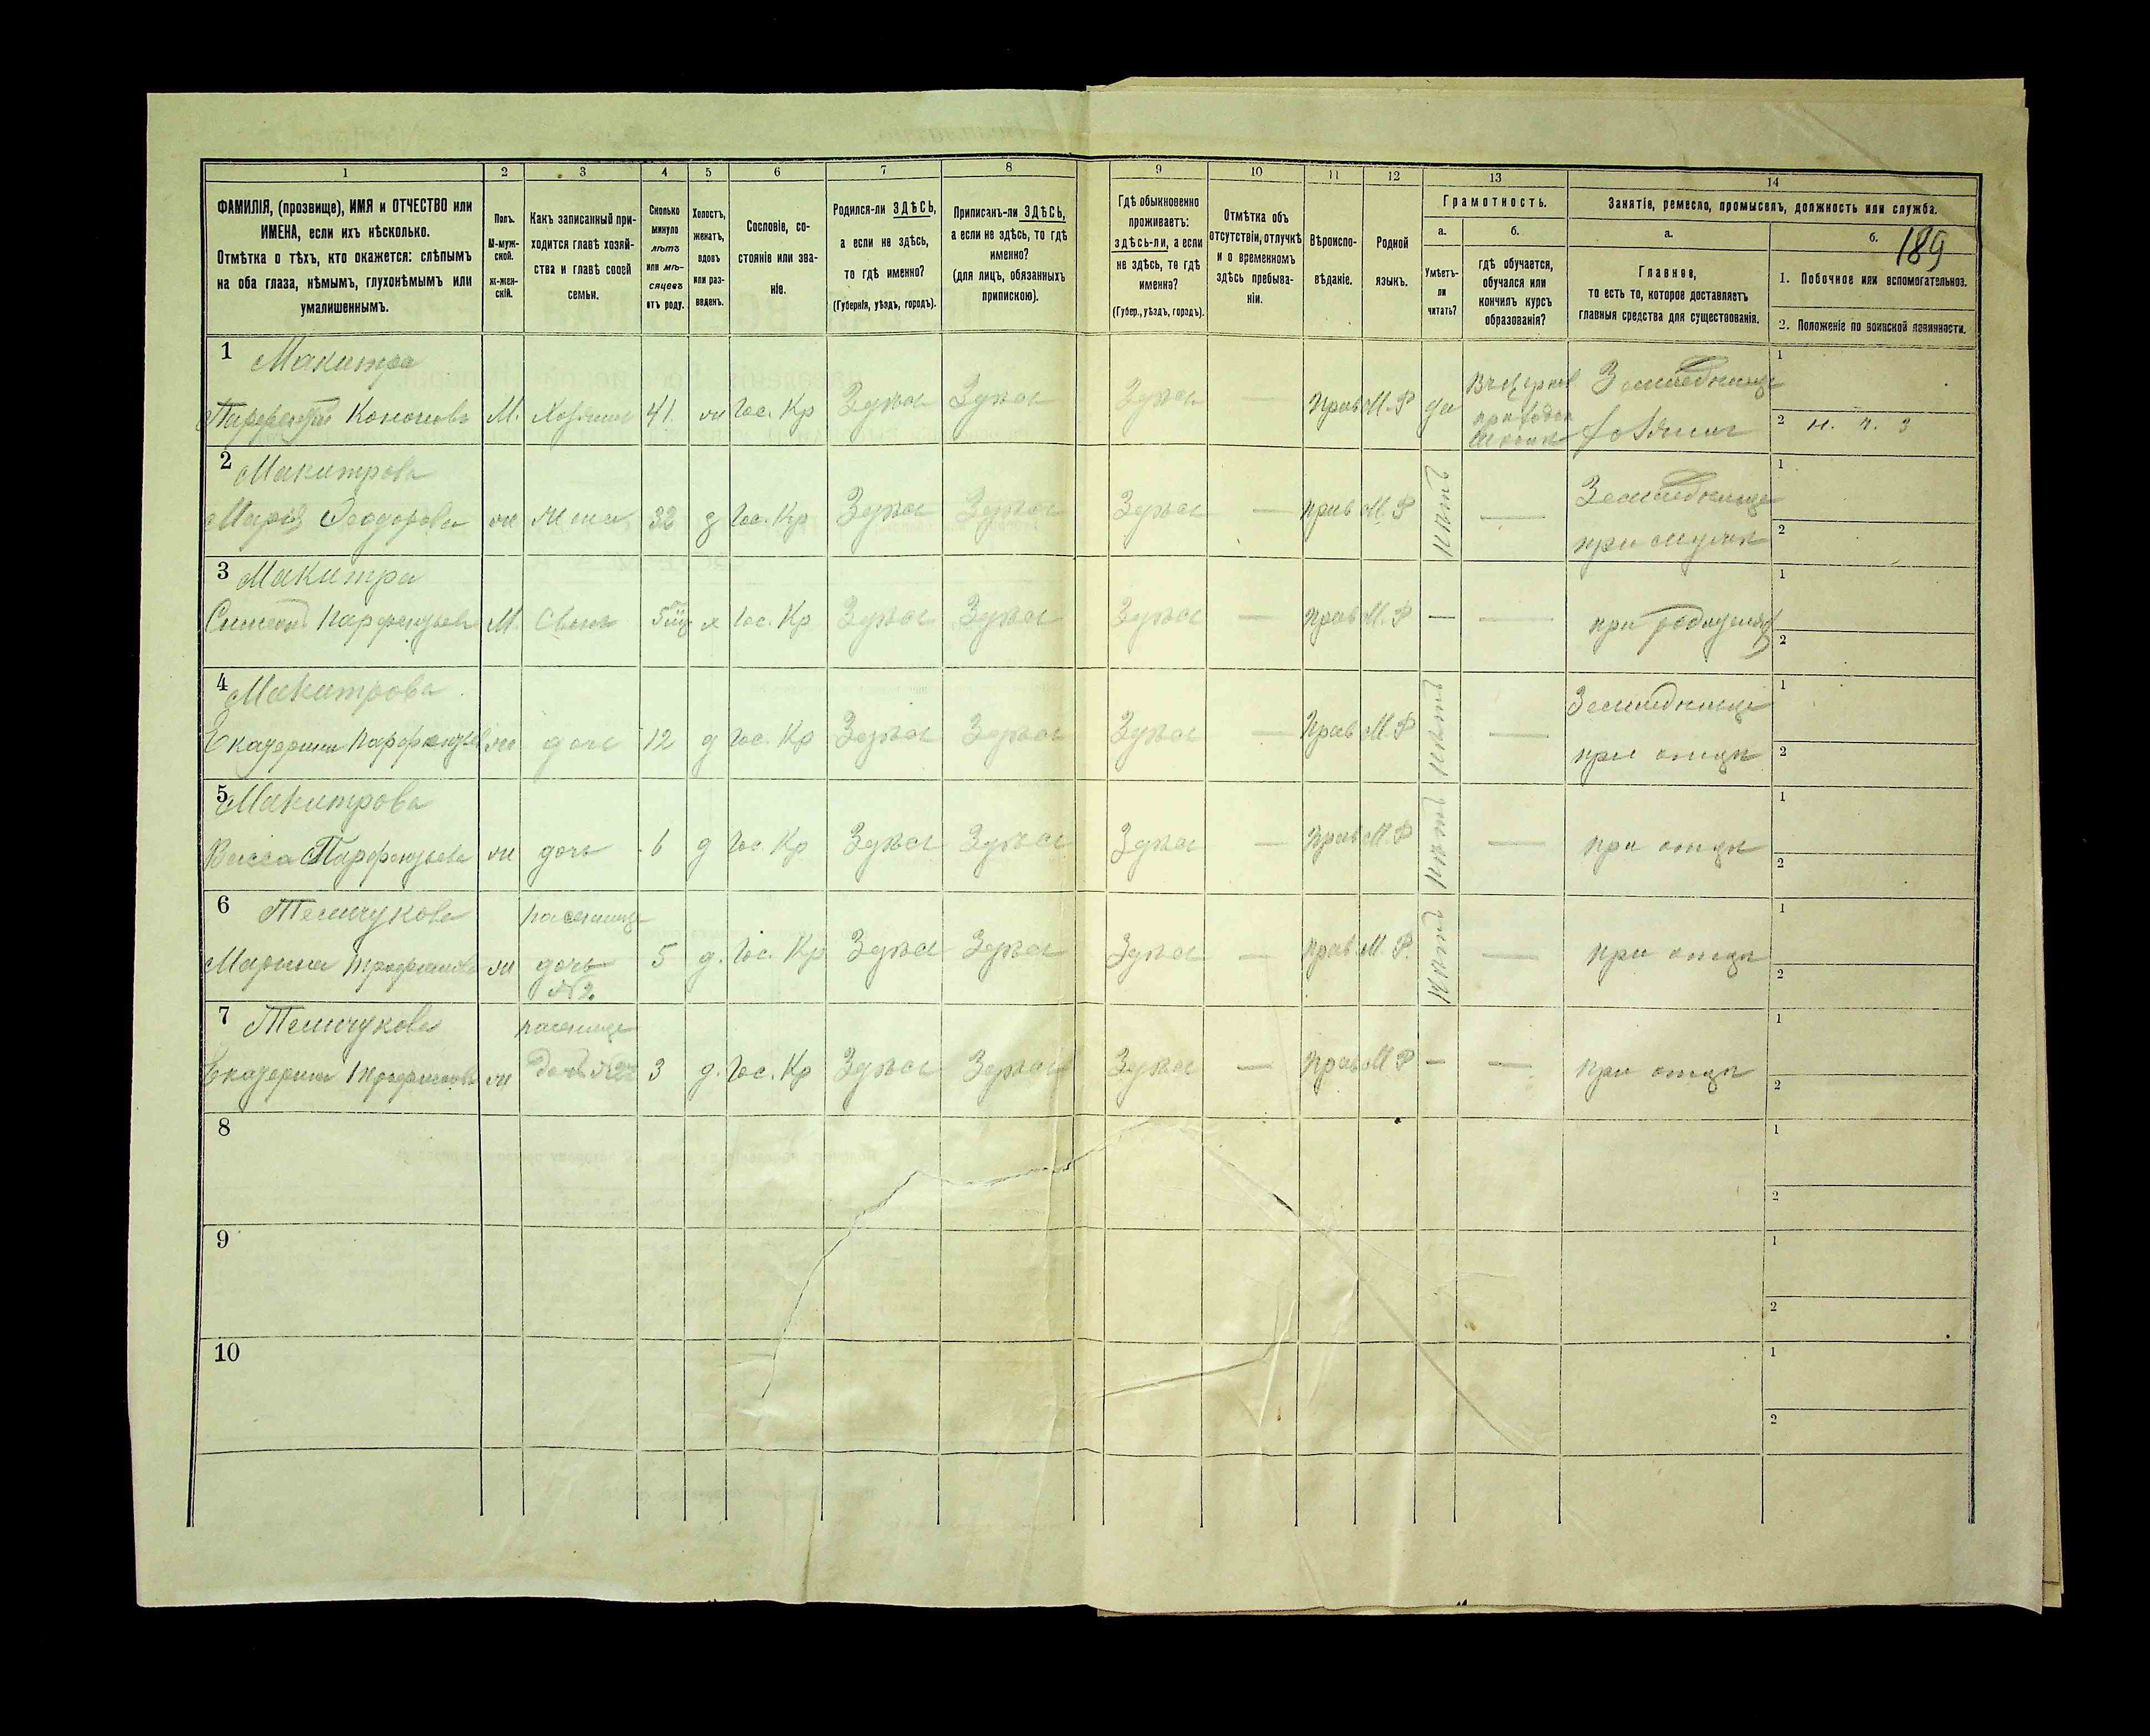 1 2 3 4 5 6 7 8 9 10 11 12 13 14
ФАМИЛІЯ, (прозвище), ИМЯ и ОТЧЕСТВО или
ИМЕНА, если ихъ нѣсколько.
Отмѣтка о тѣхъ, кто окажется: слѣпымъ
на оба глаза, нѣмымъ, глухонѣмымъ или
умалишеннымъ.
Полъ.
М-муж-
ской.
Ж-жен-
скій.
Какъ записанный при-
ходится главѣ хозяй-
ства и главѣ своей
семьи.
Сколько
минуло
лѣтъ
или мѣ-
сяцевъ
отъ роду.
Холостъ,
женатъ,
вдовъ
или раз-
веденъ.
Сословіе, со-
стояніе или зва-
ніе.
Родился-ли ЗДѢСЬ,
а если не здѣсь,
то гдѣ именно?
(Губернія, уѣздъ, городъ).
Приписанъ-ли ЗДѢСЬ,
а если не здѣсь, то гдѣ
именно?
(для лицъ, обязанныхъ
припискою).
Гдѣ обыкновенно
проживаетъ:
здѣсь-ли, а если
не здѣсь, то гдѣ
именно?
(Губер., уѣздъ, городъ).
Отмѣтка объ
отсутствіи, отлучкѣ
и о временномъ
здѣсь пребыва-
ніи.
Вѣроиспо-
вѣданіе.
Родной
языкъ.
Грамотность.
а.
Умѣетъ-
ли
читать?
б.
гдѣ обучается,
обучался или
кончилъ курсъ
образованія?
Занятіе, ремесло, промыселъ, должность или служба.
а.
Главное,
то есть то, которое доставляетъ
главныя средства для существованія.
б.
189
1. Побочное или вспомогательное.
2. Положеніе по воинской повинности.
1 Макитра
Парфентій Кононовъ М. Хозяинъ 41 ж Гос. Кр Здѣсь Здѣсь Здѣсь — Прав М. Р да
Земледѣлецъ
Хозяинъ
1
2 н. ч. 3
2 Макитрова
Марія Феодорова ж Жена 32 з Гос. Кр Здѣсь Здѣсь Здѣсь — прав М. Р нѣтъ —
Земледѣлецъ
при мужѣ
1
2
3 Макитра
Симеонъ Парфентьевъ М. Сынъ х Гос. Кр Здѣсь Здѣсь Здѣсь — Прав М. Р — —
при родителяхъ
1
2
4 Макитрова
Екатерина Парфентьев ж дочь 12 д Гос. Кр Здѣсь Здѣсь Здѣсь — Прав М. Р нѣтъ —
Земледѣлецъ
при отцѣ
1
2
5 Макитрова
Васса Парфентьева ж дочь 6 д Гос. Кр Здѣсь Здѣсь Здѣсь — Прав М. Р нѣтъ —
при отцѣ
1
2
6
Марина Трофимова ж дочь 5 д. Гос. Кр Здѣсь Здѣсь Здѣсь — прав. М. Р. нѣтъ —
№ 2.
при отцѣ
1
2
7
Екатерина Трофимова ж 3 д. Гос. Кр Здѣсь Здѣсь Здѣсь — Прав М Р — —
при отцѣ
1
2
8
1
2
9
1
2
10
1
2